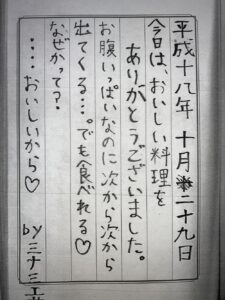 平成十八年 十月二十九日
今日は、おいしい料理を
ありがとうございました。
お腹いっぱいなのに次から次から
出てくる…。でも食べれる♡
なぜかって?
‥‥おいしいから♡
byミナミ